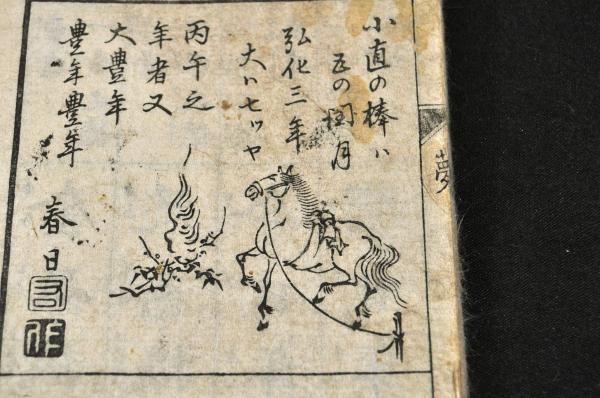 小直の棒ハ
五の閏月
弘化三年
大ハセツヤ
丙午之
年者又
大豊年
豊年豊年
春日
夢